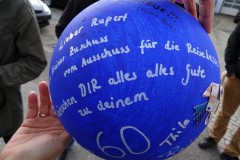 Lieber Rupert
kleiner Zuschuss
vom Ausschuss für die Reisekasse
wünschen DIR alles alles gute
zu deinem
60
Thilo